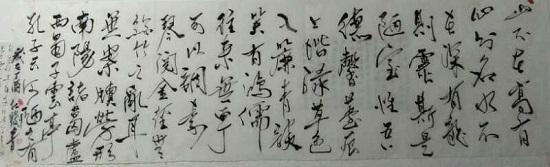 山不在高有
仙则名水不
在深有龍
則靈斯是
陋室惟吾
德馨苔痕
上階緑草色
入簾青談
笑有鴻儒
往来無白丁
可以調素
琴閲金經無
絲竹之亂耳
無案牘勞形
南陽諸葛廬
西蜀子雲亭
孔子云何陋之有